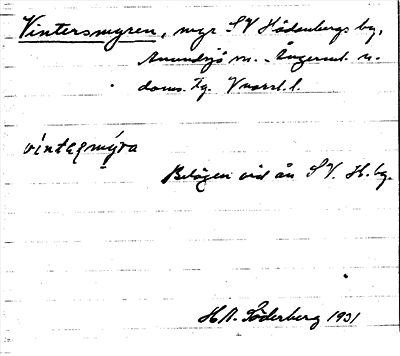 Vintersmyren, myr SV Hädanbergs by,
Anundsjö sn. Ångerml. n.
doms. tg. Vnorrl. l.
víntəṣmýra
Belägen vid ån SV. H. by.
H. A. Söderberg 1931